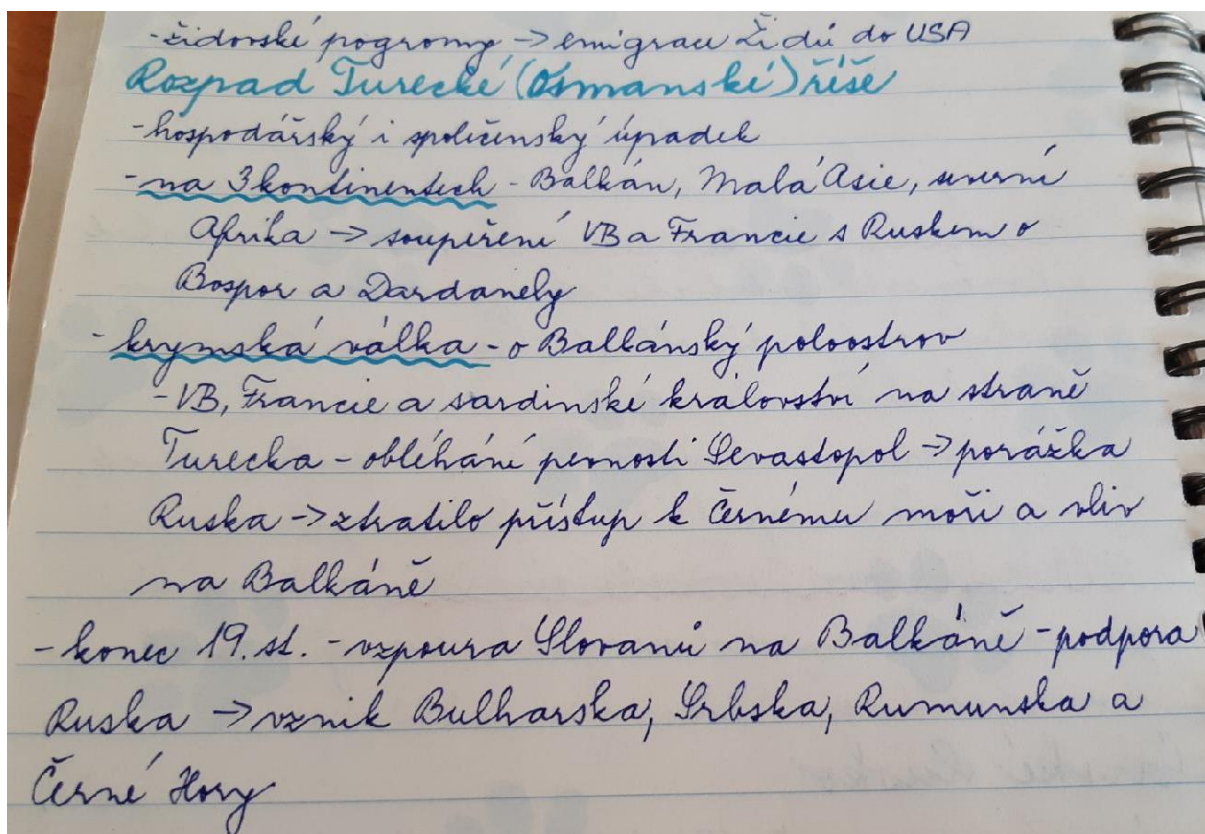 -židovské pogromy → emigrace Židů do USA
Rozpad Turecké (Osmanské) říše
-hospodářský i společenský úpadek
-na 3 kontinentech - Balkán, Malá Asie, severní
Afrika → soupeření VB a Francie s Ruskem o
Bospor a Dardanely
-krymská válka - o Balkánský poloostrov
-VB, Francie a sardinské království na straně
Turecka - obléhání pevnosti Sevastopol → porážka
Ruska → ztratilo přístup k Černému moři a vliv
na Balkáně
-konec 19. st. - vzpoura Slovanů na Balkáně - podpora
Ruska → vznik Bulharska, Srbska, Rumunska a
Černé Hory